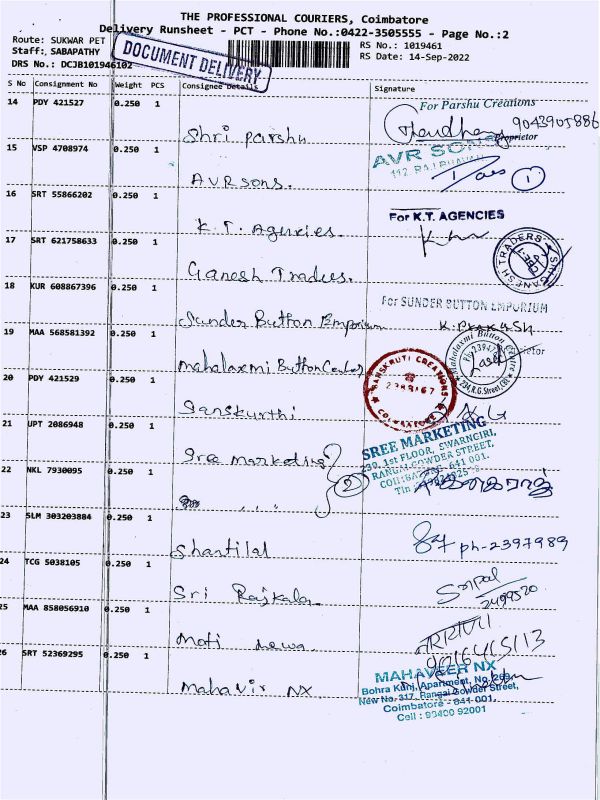 THE PROFESSIONAL COURIERS, Coimbatore
Delivery Runsheet - PCT - Phone No.:0422-3505555 - Page No.:2
Route: SUKWAR PET
RS No.: 1019461
Staff: SABAPATHY
RS Date: 14-Sep-2022
DRS No.: DCJB101946102
DOCUMENT DELIVERY
S No Consignment No Weight PCS Consignee Details Signature
14 PDY 421527 0.250 1 Shri Parshu
For Parshu Creations
9043905886
Proprietor
15 VSP 4708974 0.250 1 AVR sons.
AVR SONS
1
16 SRT 55866202 0.250 1 K.T. Agencies.
For K.T. AGENCIES
17 SRT 621758633 0.250 1 Ganesh Traders.
SRI GANESH TRADERS
18 KUR 608867396 0.250 1 Sunder Button Emporium
For SUNDER BUTTON EMPORIUM
K. PRAKASH
19 MAA 568581392 0.250 1 Mahalaxmi Button Center
Mahalaxmi Button Centre
234, R.G. Street, CBE
20 PDY 421529 0.250 1 Sanskurthi
SANSKRUTI CREATIONS
COIMBATORE
21 UPT 2086948 0.250 1 Sree Marketing
SREE MARKETING
1st FLOOR, SWARNGIRI,
RANGAI GOWDER STREET,
22 NKL 7930095 0.250 1 " "
2
23 SLM 303203884 0.250 1 Shantilal
ph-2397989
24 TCG 5038105 0.250 1 Sri Rajkala
Sripal
2499520
25 MAA 858056910 0.250 1 Moti
26 SRT 52369295 0.250 1 Mahavir NX
MAHAVEER NX
Bohra Kunj, Apartment, No. 269
New No. 317, Rangai Gowder Street,
Coimbatore - 641 001.
Cell : 93400 92001